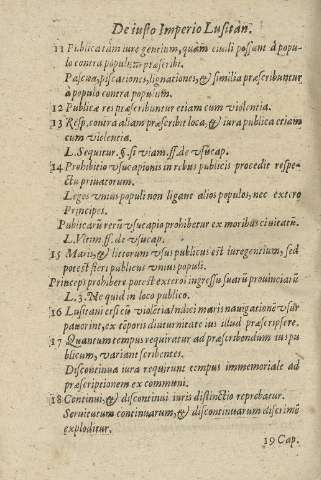 De iusto Imperio Lusitan.
11 Publica tam iure gentium, quàm ciuili possunt à popu-
lo contra populum præscribi.
Pascua, piscationes, lignationes, & similia præscribuntur
à populo contra populum.
12 Publicæ res præscribuntur etiam cum violentia.
13 Resp. contra aliam præscribit loca, & iura publica etiam
cum violentia.
L. Sequitur. §. si viam. ff. de vsucap.
14 Prohibitio vsucapionis in rebus publicis procedit respe-
ctu priuatorum.
Leges vnius populi non ligant alios populos, nec extero
Principes.
Publicarũ rerũ vsucapio prohibetur ex moribus ciuitatũ.
L. Vltim. ff. de vsucap.
15 Maris, & littorum vsus publicus est iuregentium, sed
potest fieri publicus vnius populi.
Principi prohibere potest extero ingressũ suarũ prouinciarũ
L. 3. Ne quid in loco publico.
16 Lusitani etsi cũ violẽtia Indici maris nauigationẽ vsur
pauerint, ex tẽporis diuturnitate ius illud præscripsere.
17 Quantum tempus requiratur ad præscribendum ius pu
blicum, variant scribentes.
Discontinua iura requirunt tempus immemoriale ad
præscriptionem ex communi.
18 Continui, & discontinui iuris distinctio reprobatur.
Seruitutum continuarum, & discontinuarum discrimẽ
exploditur.
19 Cap.